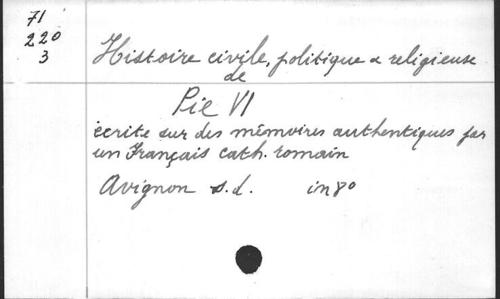 71
220
3
Histoire civile, politique & religieuse
de
Pie VI
écrite sur des mémoires authentiques par
un Français cath. romain
Avignon s.d. in 8o